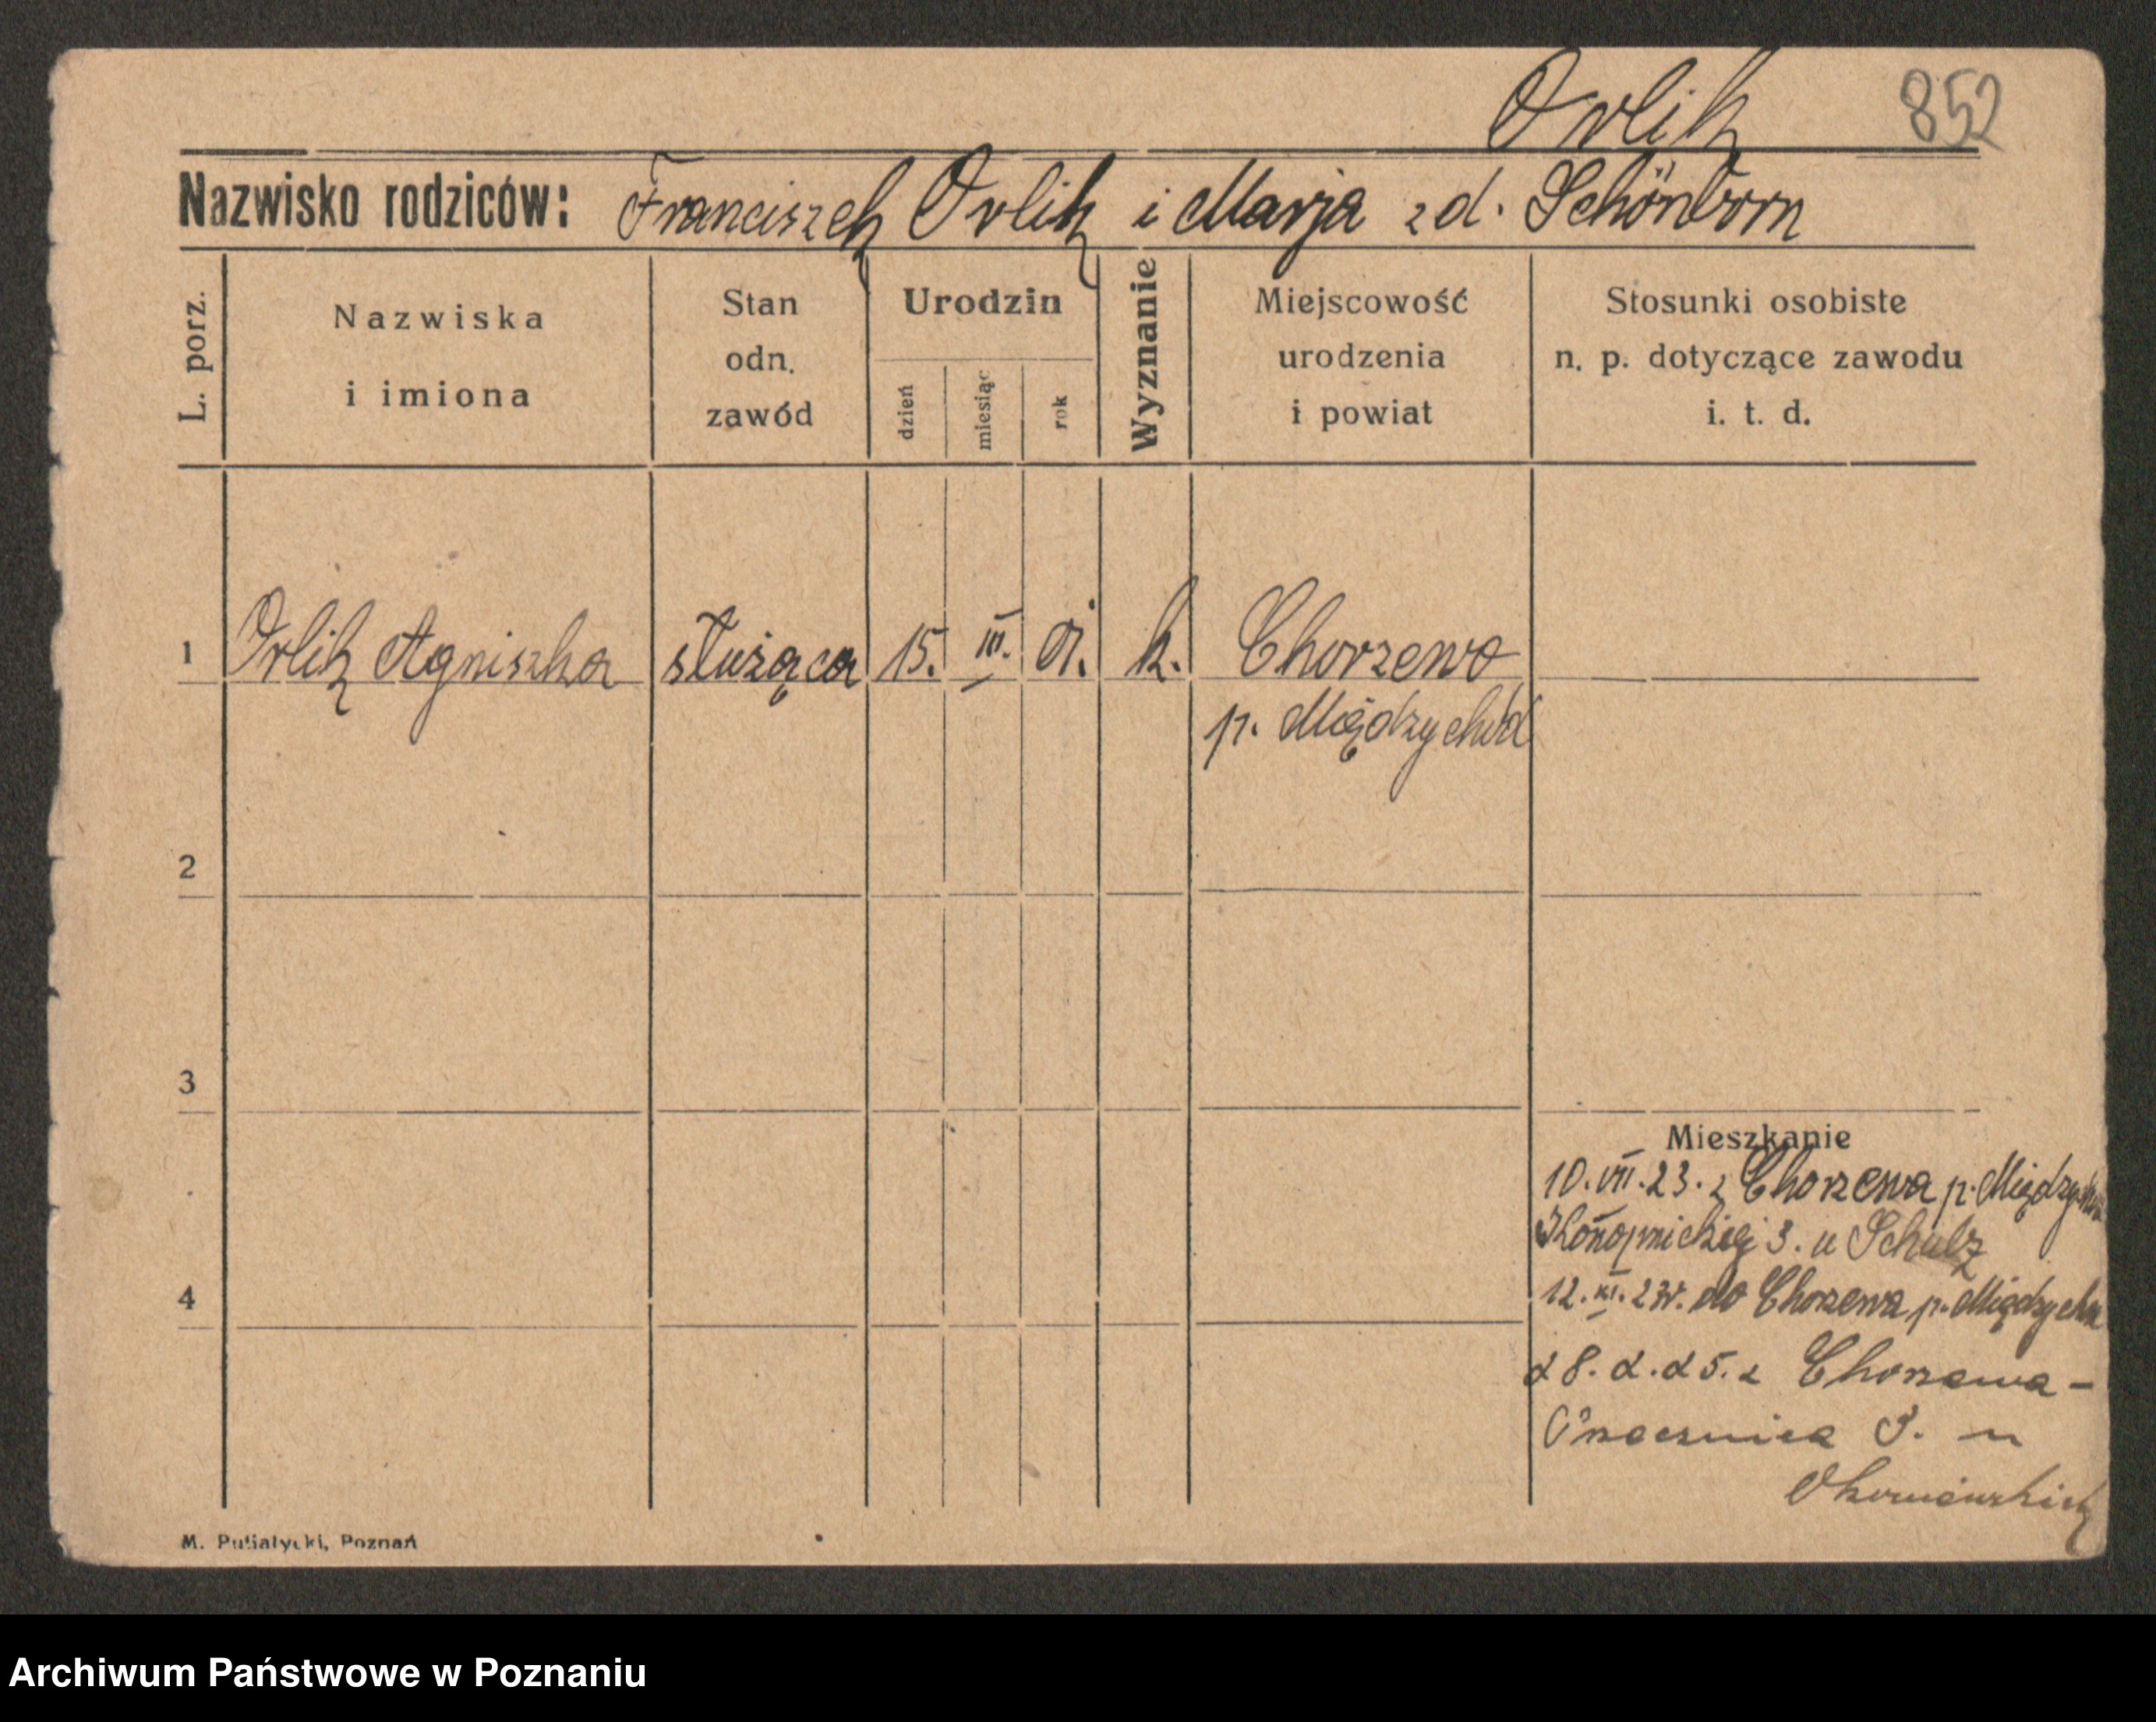 Orlik 852
Nazwisko rodziców: Franciszek Orlik i Marja zd. Schönborn
L. porz.
Nazwiska
i imiona
Stan
odn.
zawód
Urodzin
dzień
miesiąc
rok
Wyznanie
Miejscowość
urodzenia
i powiat
Stosunki osobiste
n. p. dotyczące zawodu
i. t. d.
1 Orlik Agniszka służąca 15. III. 01. k. Chorzewo
p. Międzychód
2
3
Mieszkanie
10. VII. 23. z Chorzewa p. Międzychod
Konopnickiej 3. u Schulz
4
12. XI. 23r. do Chorzewa p. Międzychod
28. 2. 25. z Chorzewa -
3. u
M. Putiatycki, Poznań
Archiwum Państwowe w Poznaniu